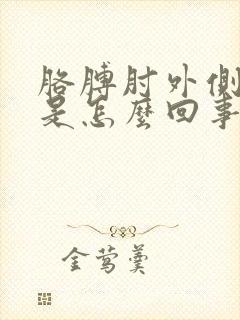 胳膊肘外侧
是怎么回事
金莺羹